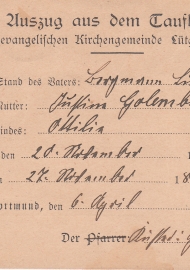 Auszug aus dem Taufl
evangelischen Kirchengemeinde Lüt
Stand des Vaters: Bergmann
Mutter: Justine Golemb
indes: Ottilie
den 20. November 1
n 27. November 18
ortmund, den 6. April
Der Pfarrer Küster: